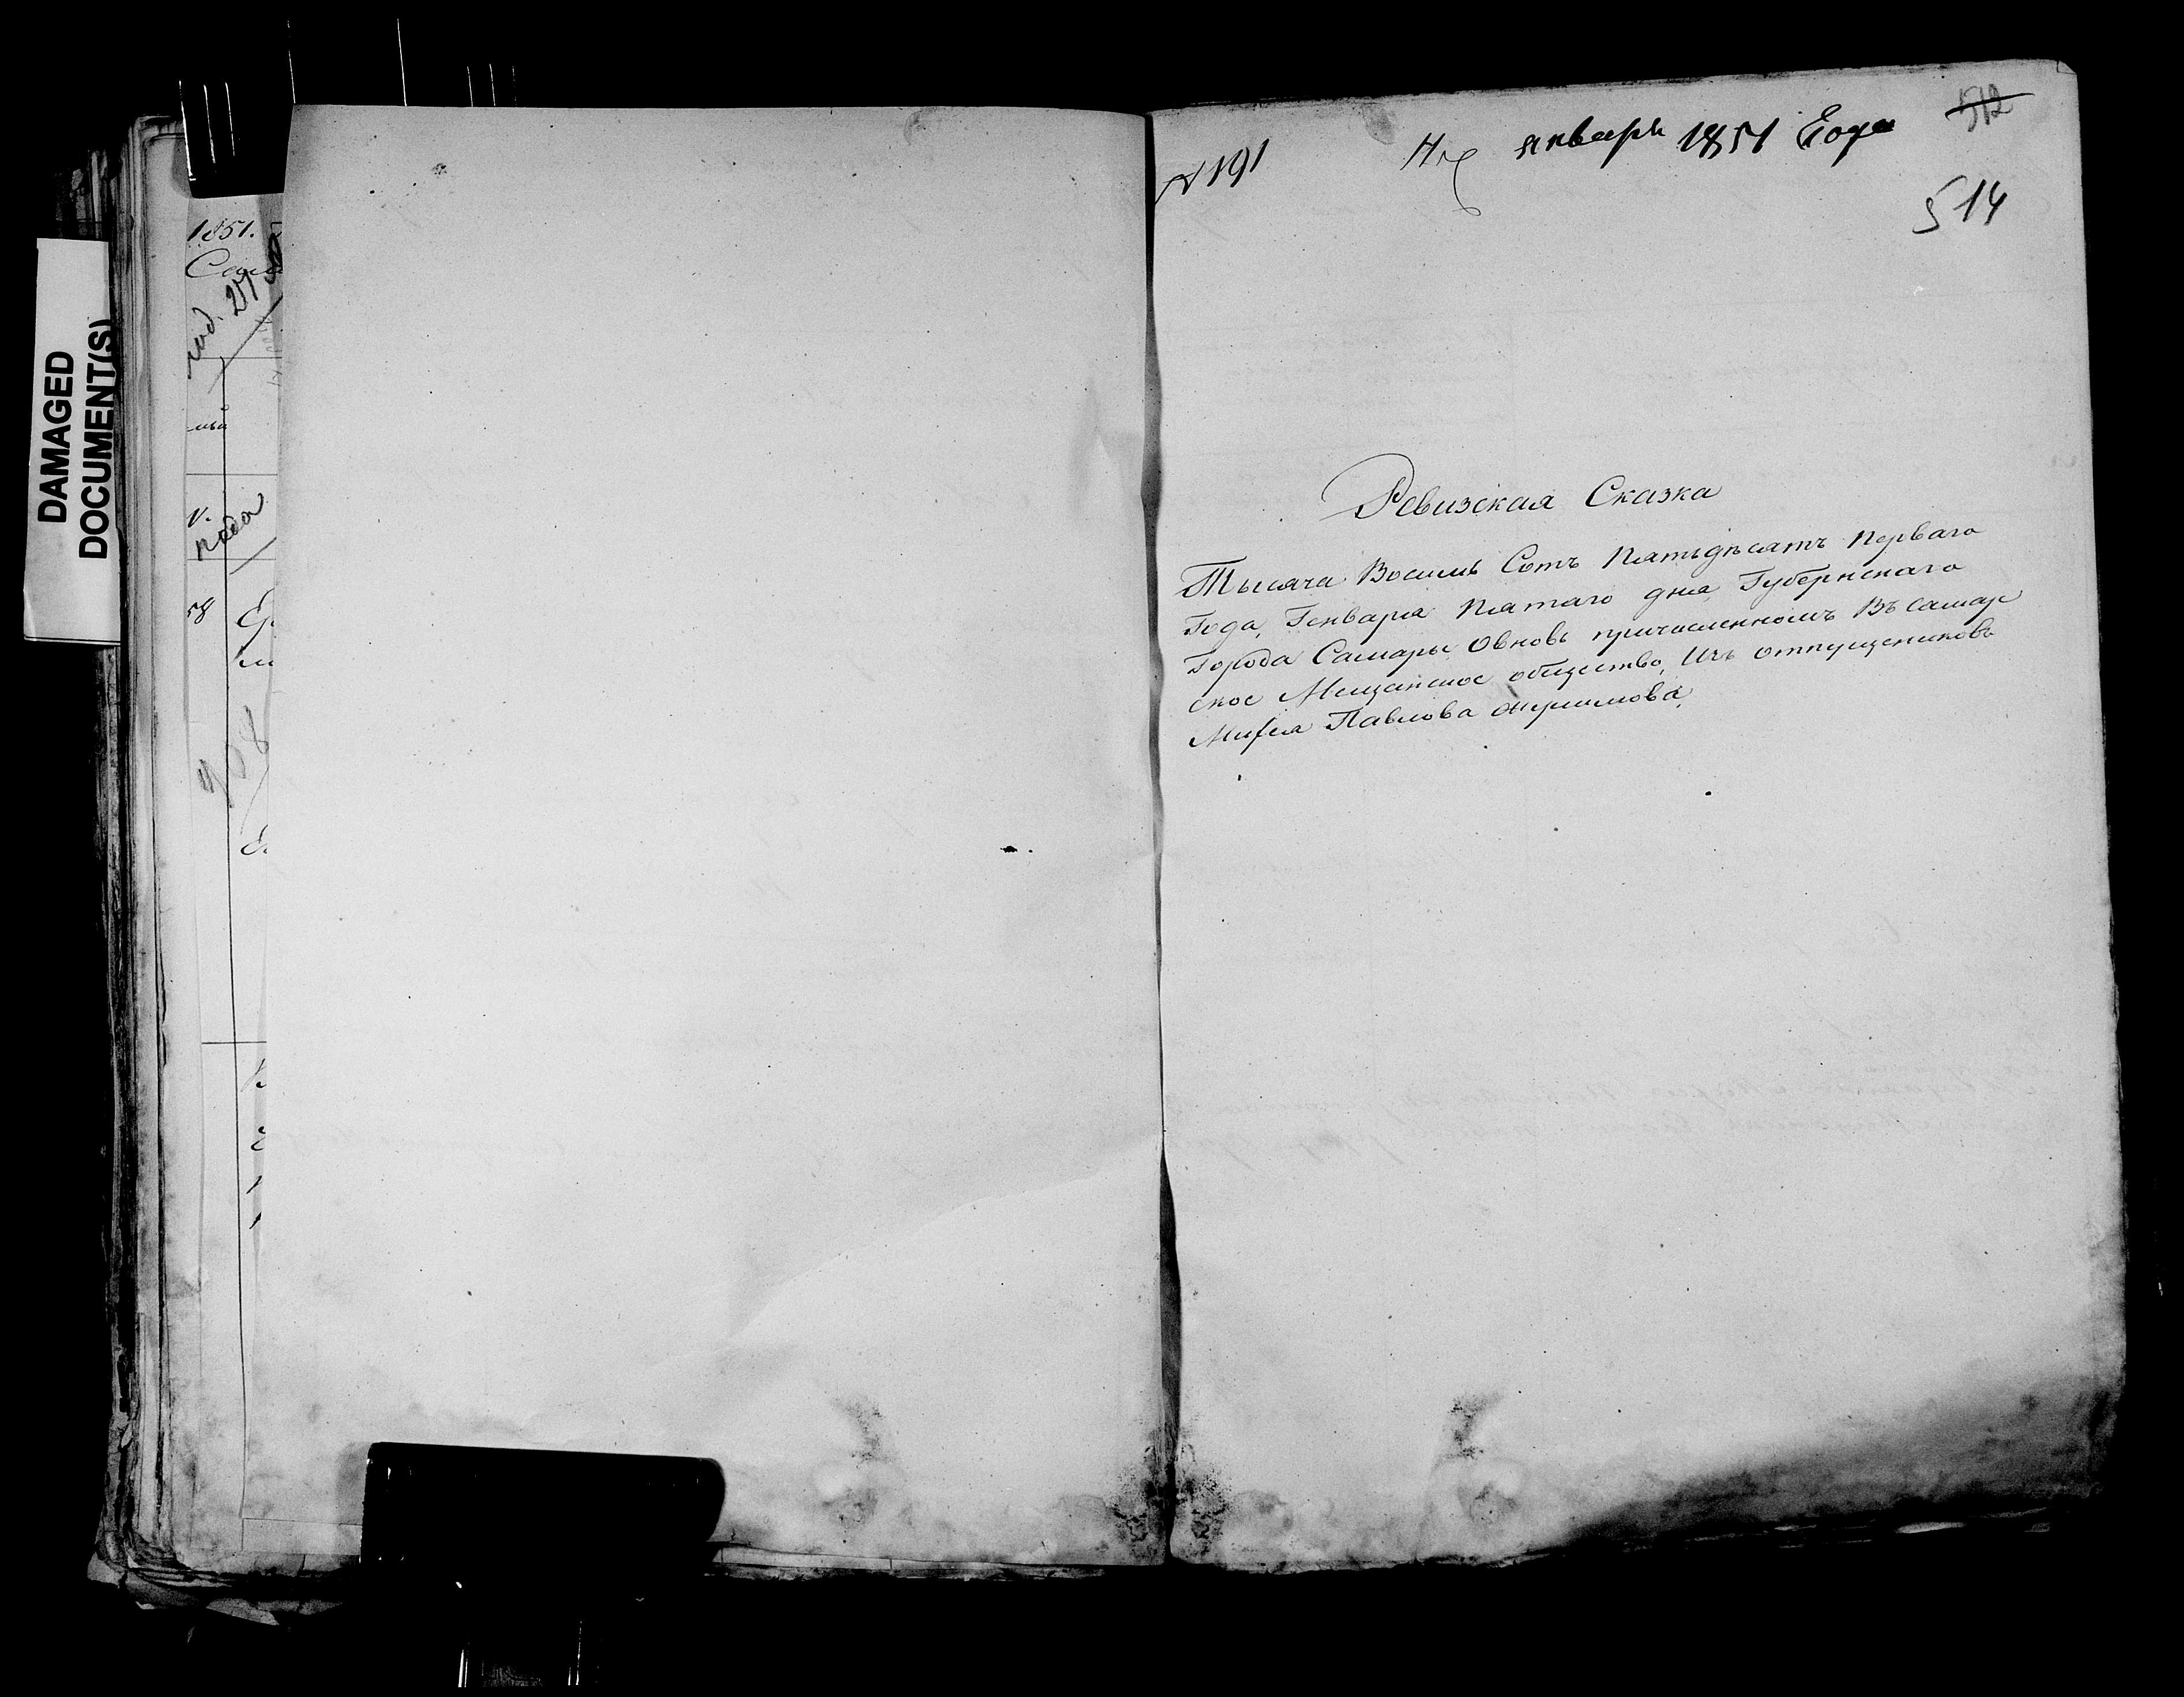 DAMAGED
DOCUMENT(S)
1851.
№ 191
январь 1851 Года
512
514
Ревизская Сказка
Тысяча Восимь Сотъ Пятьдѣсятъ Перваго
Года, Генваря Пятаго дня, Губернскаго
Города Самары Овновь причисленномъ Въ самар
ское Мещанское общество, Изъ отпущениковъ
Павлова